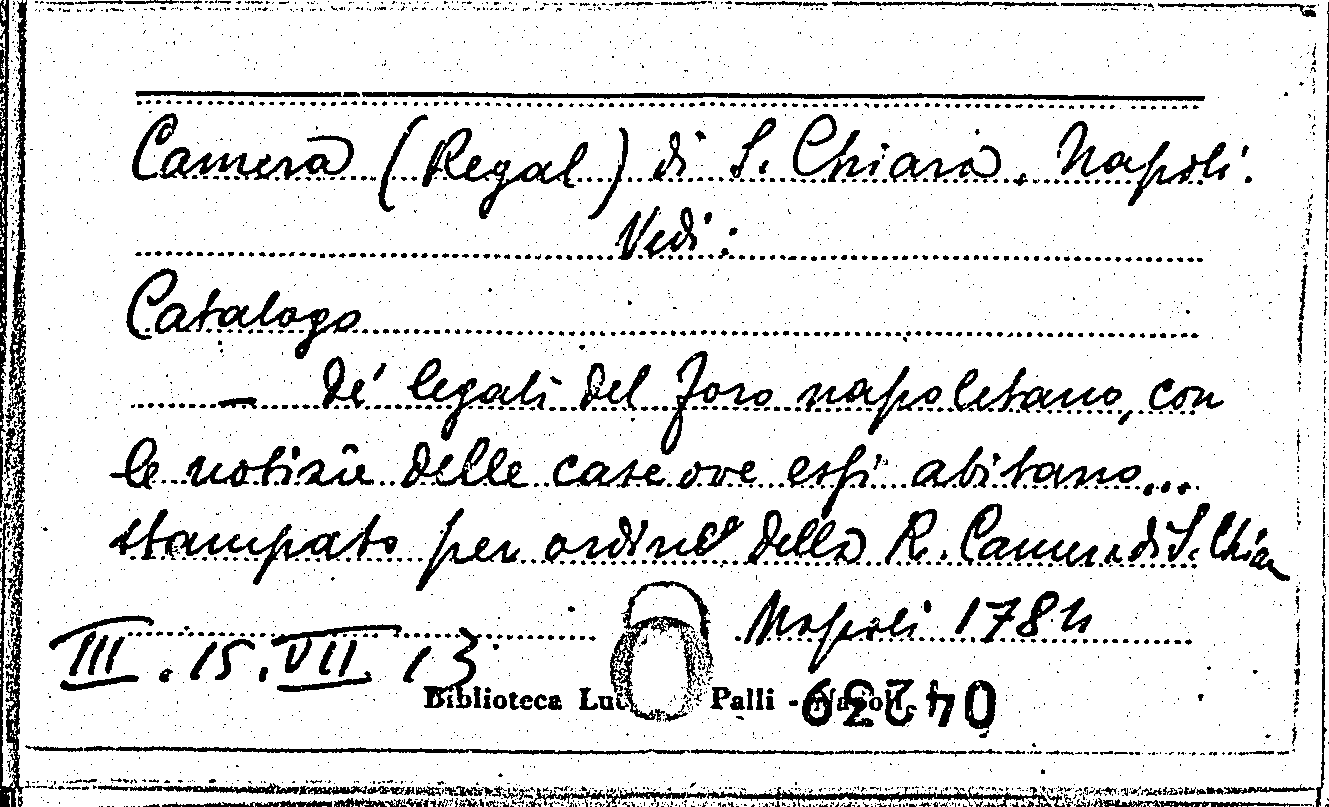 Camera (Regal) di S. Chiara. Napoli.
Vedi:
Catalogo
— de' legali del foro napoletano, con
le notizie delle case ove essi abitano...
stampato per ordine della R. Camera di S. Chiar
Napoli 1784
III. 15. VII. 13
Biblioteca Palli - Napoli
04239